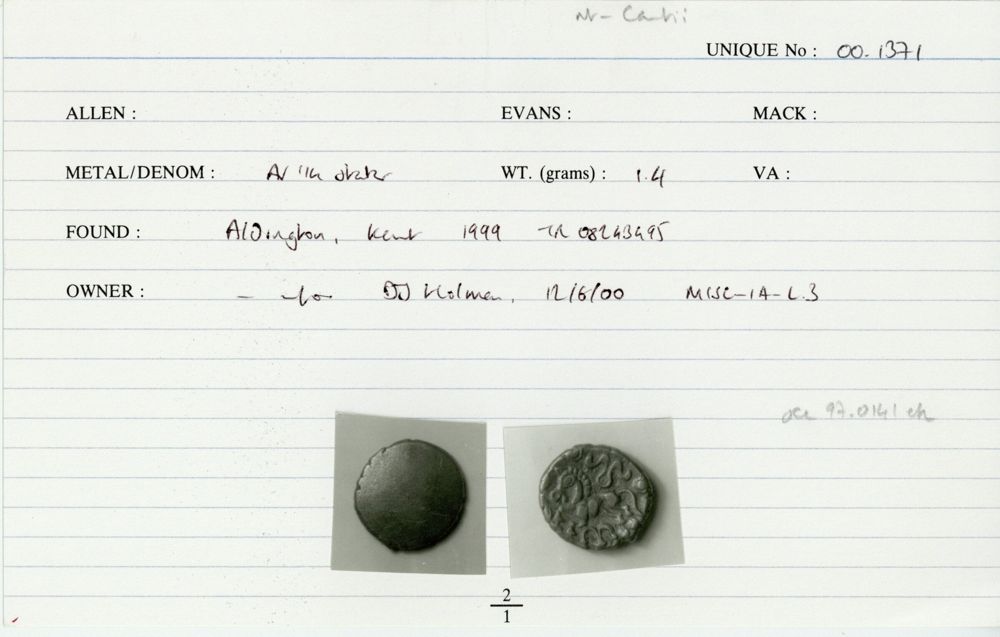 Cantii
UNIQUE No : 00.1371
ALLEN : EVANS : MACK :
METAL/DENOM : 1/4 stater WT. (grams) : 1.4 VA :
FOUND : Aldington, Kent 1999 TR 08243495
OWNER : - info DJ Holman, 12/6/00 MISC-IA-L.3
97.0141
2
1